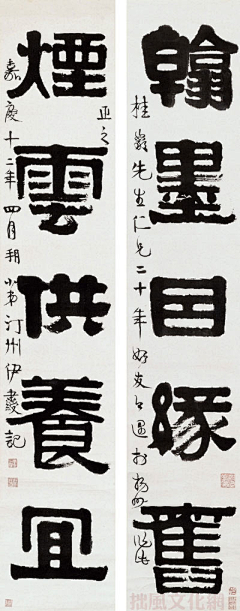 翰墨因緣舊
桂翁先生仁兄二十年好友今遇於揚州
正之
煙雲供養宜
嘉慶十二年四月朔小弟汀州伊秉綬記
拙風文化網